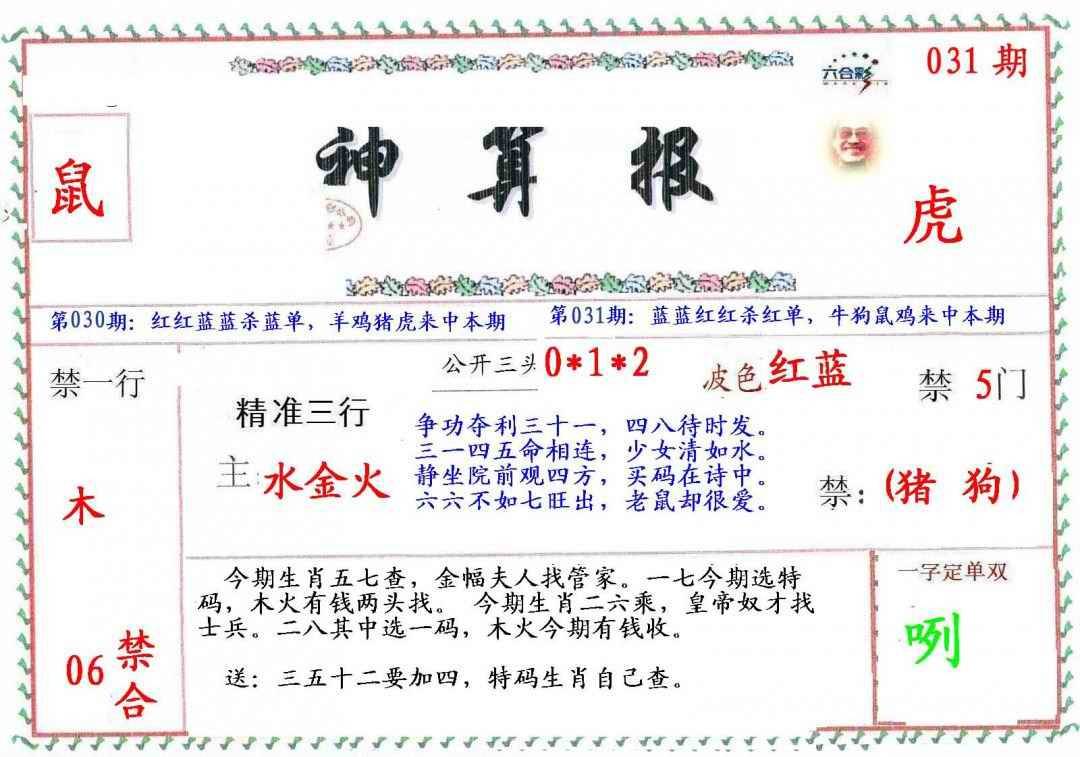 031 期
六合彩
鼠
神算报
虎
第030期：红红蓝蓝杀蓝单，羊鸡猪虎来中本期
第031期：蓝蓝红红杀红单，牛狗鼠鸡来中本期
禁一行
公开三头 0*1*2
波色 红蓝
禁 5门
精准三行
争功夺利三十一，四八待时发。
三一四五命相连，少女清如水。
静坐院前观四方，买码在诗中。
六六不如七旺出，老鼠却很爱。
主：水金火
禁：(猪 狗)
木
今期生肖五七查，金幅夫人找管家。一七今期选特
码，木火有钱两头找。 今期生肖二六乘，皇帝奴才找
士兵。二八其中选一码，木火今期有钱收。
送：三五十二要加四，特码生肖自己查。
一字定单双
咧
06 禁合